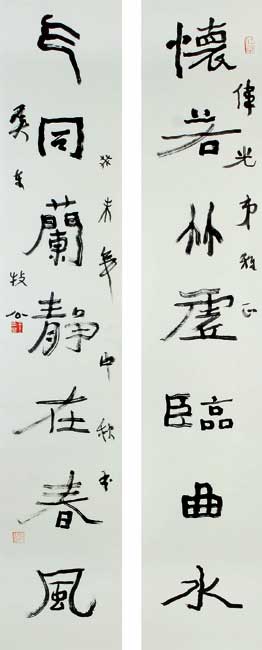 懷若竹虛臨曲水
偉光弟雅正
气同蘭靜在春風
癸未年中秋書
牧